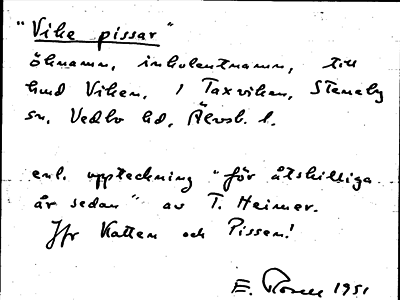 "Vike pissar"
öknamn, inkolentnamn, till
hmd Viken, i Taxviken, Steneby
sn, Vedbo hd, Älvsb. l.
enl. uppteckning "för åtskilliga
år sedan" av T. Heimer.
Jfr Katten och Pissen!
E. Rosell 1951